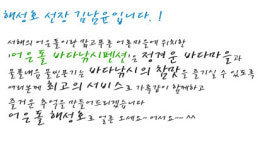 해성호 선장 김남윤입니다. !
서해의 어은돌이란 맑고푸른 어촌마을에 위치한
'어은돌 바다낚시펜션'은 정겨운 바다마을과
물물내음 물씬풍기는 바다낚시의 참맛을 즐기실 수 있도록
여러분께 최고의 서비스로 가족같이 함께하고
즐거운 추억을 만들어드리겠습니다
어은돌 해성호로 얼른 오세요~어서요~~ ^^